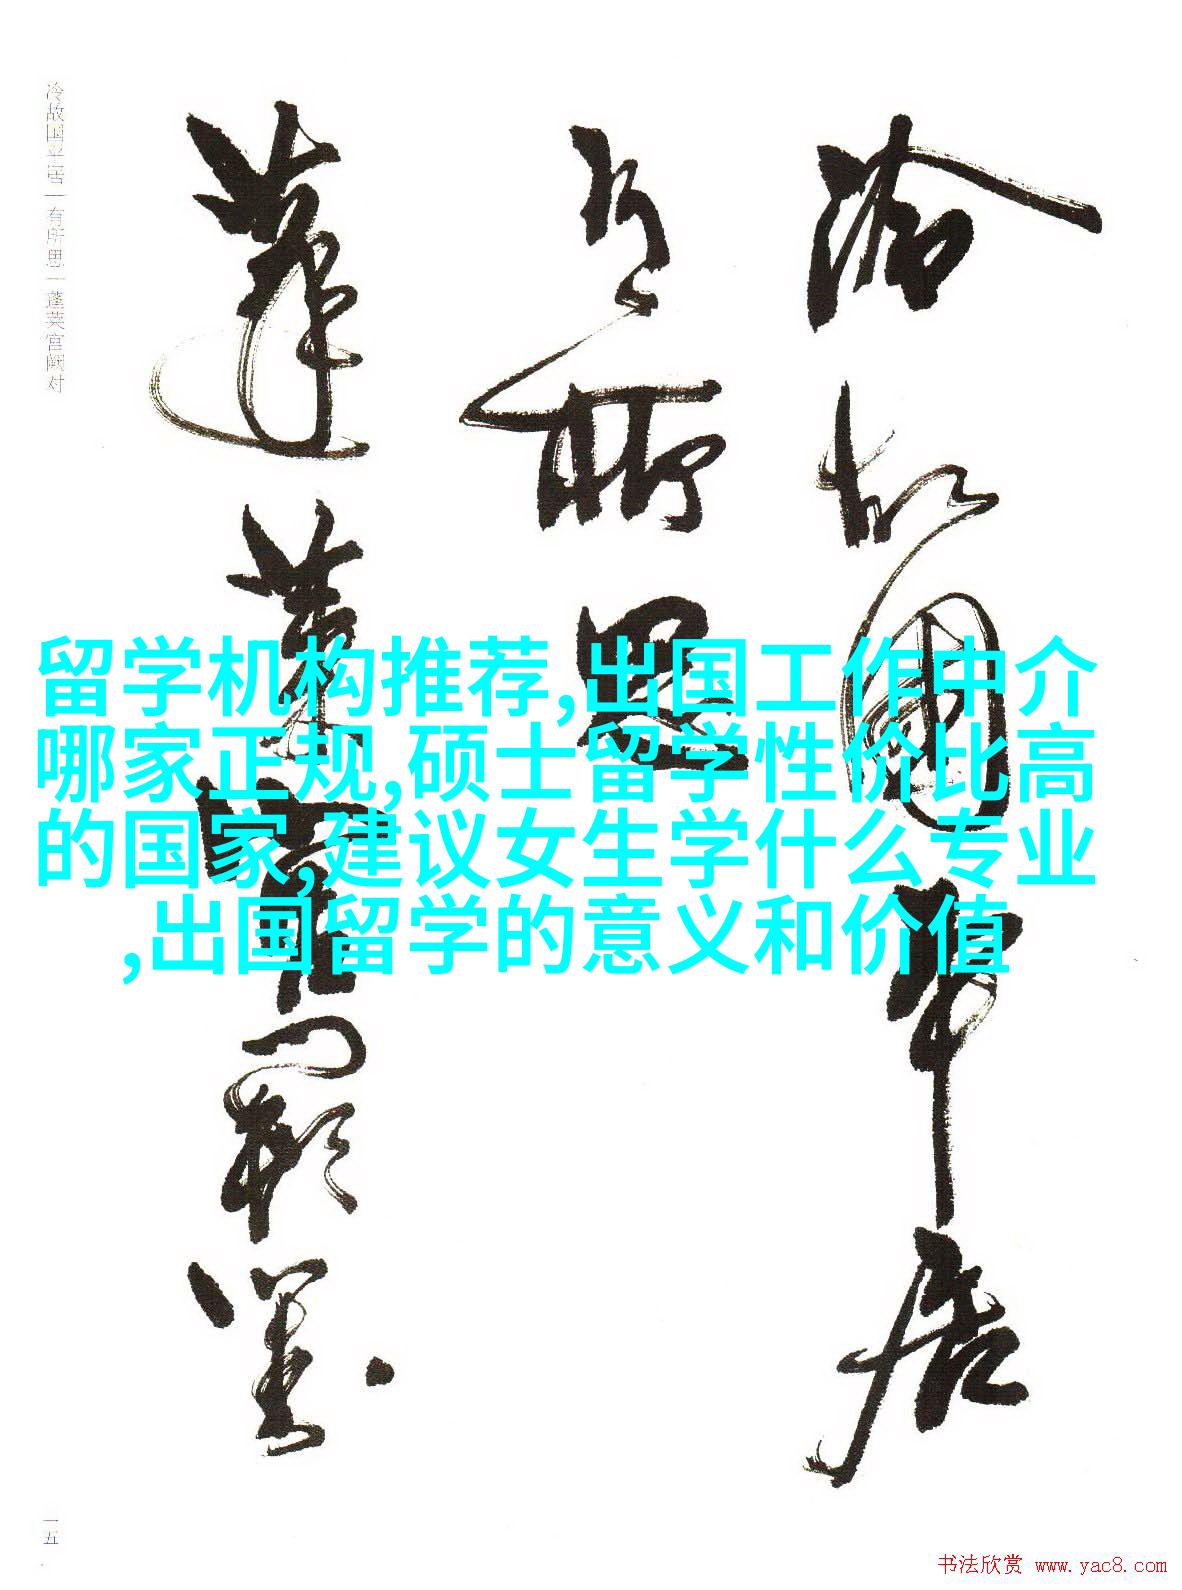 冷故国平居
有所思
蓬莱宫阙对
冷故国平居|有所思|蓬莱宫阙对
留学机构推荐,出国工作中介
哪家正规,硕士留学性价比高
的国家,建议女生学什么专业
,出国留学的意义和价值
一五
书法欣赏 www.yac8.com